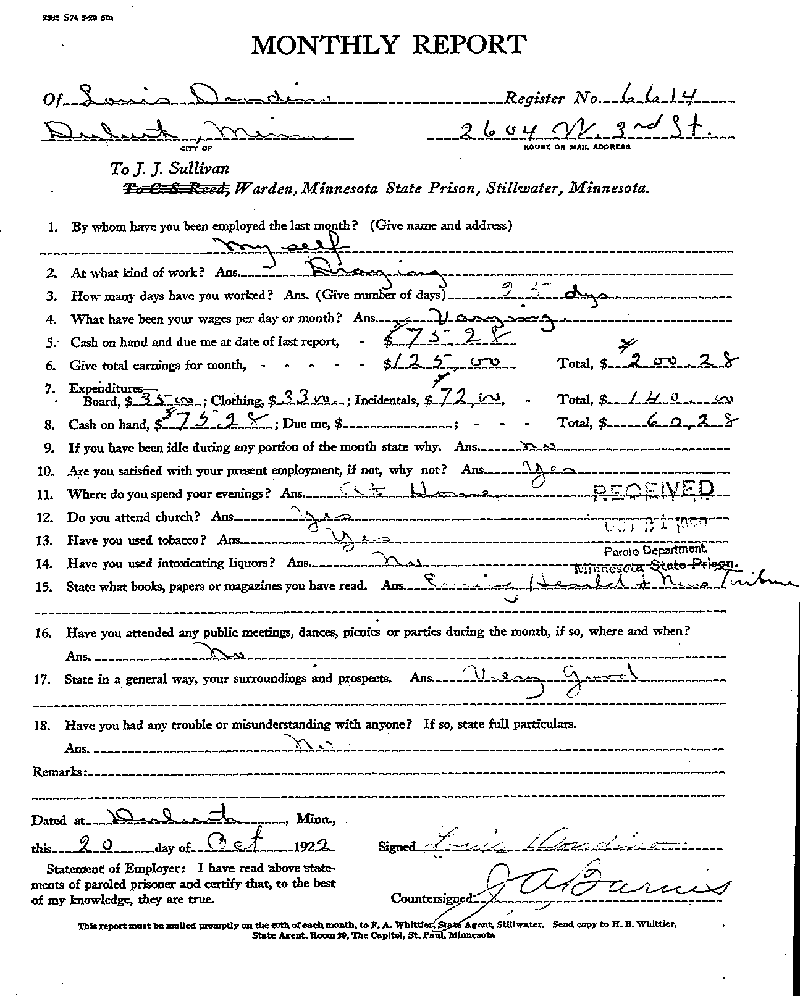 MONTHLY REPORT
Of Louis Dondino Register No. 6614
Duluth, Minn 2604 W. 3rd St.
CITY OF HOUSE OR MAIL ADDRESS
To J. J. Sullivan
To C. S. Reed, Warden, Minnesota State Prison, Stillwater, Minnesota.
1. By whom have you been employed the last month? (Give name and address)
My self
2. At what kind of work? Ans. Draying
3. How many days have you worked? Ans. (Give number of days) 25 dys
4. What have been your wages per day or month? Ans. Varying
5. Cash on hand and due me at date of last report, - $75.28
6. Give total earnings for month, - - - - - $125.00 Total, $ 200.28
7. Expenditures—
Board, $35.00; Clothing, $33.00; Incidentals, $72.00, - Total, $140.00
8. Cash on hand, $75.28; Due me, $ ; - - - Total, $ 60.28
9. If you have been idle during any portion of the month state why. Ans. no
10. Are you satisfied with your present employment, if not, why not? Ans. Yes
11. Where do you spend your evenings? Ans. At Home
RECEIVED
12. Do you attend church? Ans. Yes
13. Have you used tobacco? Ans. Yes
Parole Department
14. Have you used intoxicating liquors? Ans. No
Minnesota State Prison.
15. State what books, papers or magazines you have read. Ans. Evening Herald & News Tribune
16. Have you attended any public meetings, dances, picnics or parties during the month, if so, where and when?
Ans. No
17. State in a general way, your surroundings and prospects. Ans. Very Good
18. Have you had any trouble or misunderstanding with anyone? If so, state full particulars.
Ans. No
Remarks:
Dated at Duluth, Minn.,
this 20 day of Oct 1922 Signed Louis Dondino
Statement of Employer: I have read above state-
ments of paroled prisoner and certify that, to the best
of my knowledge, they are true. Countersigned: J A Barnes
This report must be mailed promptly on the 20th of each month, to F. A. Whittier, State Agent, Stillwater. Send copy to H. B. Whittier,
State Agent, Room 29, The Capitol, St. Paul, Minnesota